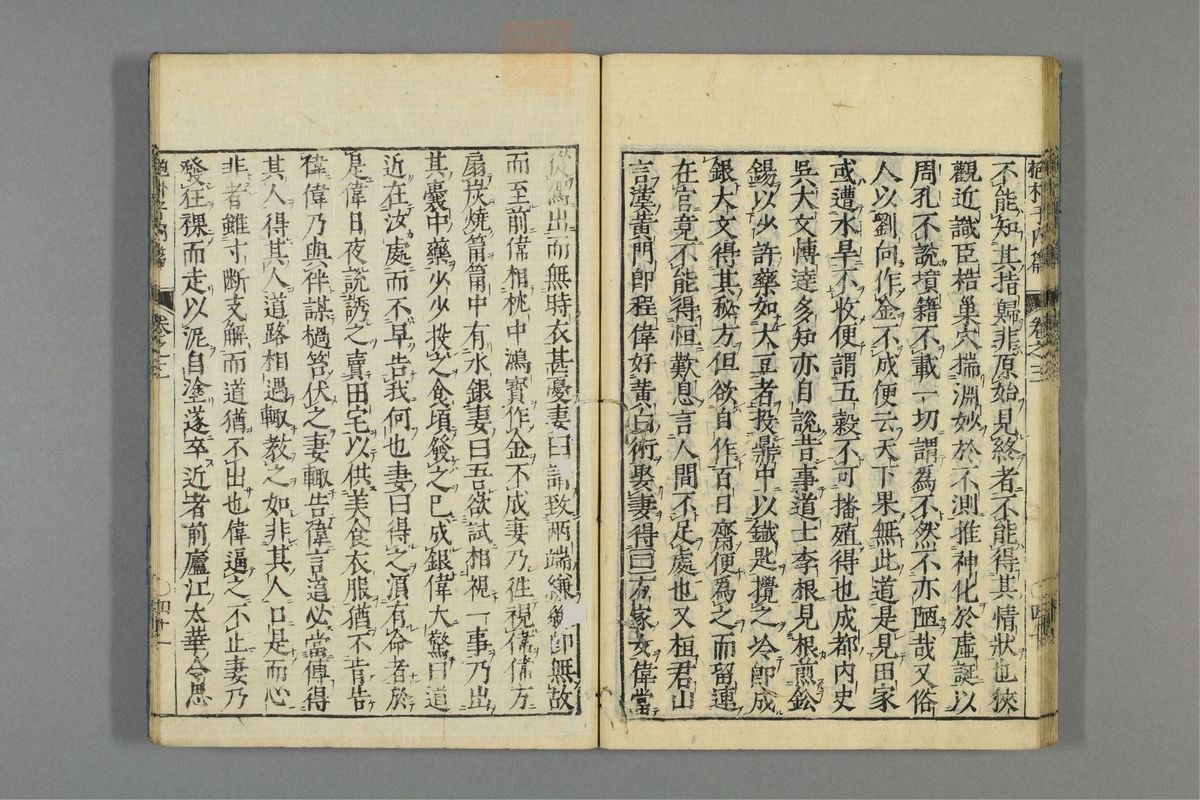 抱朴子內篇 卷之三 四十
不能知其指歸非原始見終者不能得其情狀也狹
觀近識臣梏巢穴揣淵妙於不測推神化於虛誕以
周孔不說墳籍不載一切謂爲不然不亦陋哉又俗
人以劉向作金不成便云天下果無此道是見田家
或遭水旱不收便謂五穀不可播殖得也成都內史
吳大文博達多知亦自說昔事道士李根見根煎鈆
錫以少許藥如大豆者投鼎中以鐵匙攪之冷卽成
銀大文得其秘方但欲自作百日齋便爲之而留連
在官竟不能得恒歎息言人間不足處也又桓君山
言漢黃門郎程偉好黃白術娶妻得知方家女偉當
從駕出而無時衣甚憂妻曰請致兩端縑縑卽無故
而至前偉相枕中鴻寶作金不成妻乃徃視偉偉方
扇炭燒筩筩中有水銀妻曰吾欲試相視一事乃出
其囊中藥少少投之食頃發之已成銀偉大驚曰道
近在汝處而不早告我何也妻曰得之須有命者於
是偉日夜說誘之賣田宅以供美食衣服猶不肯告
偉偉乃與伴謀檛笞伏之妻輙告偉言道必當傳得
其人得其人道路相遇輙教之如非其人口是而心
非者雖寸斷支解而道猶不出也偉逼之不止妻乃
發狂裸而走以泥自塗遂卒近者前廬江太華令思
抱朴子內篇 卷之三 四十一